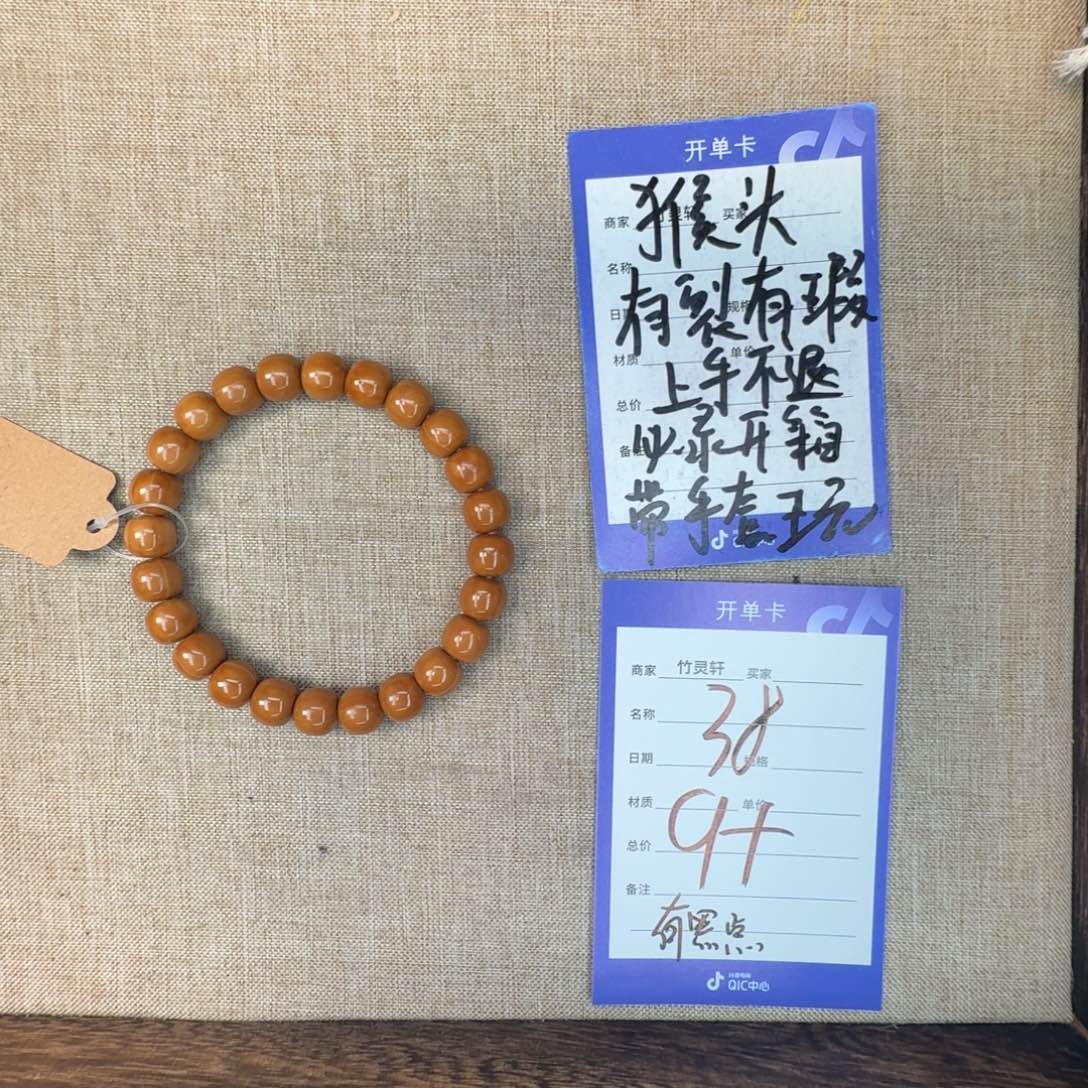 开单卡
猴头
商家 竹灵轩 买家
名称
有裂有瑕
日期 规格
上手不退
材质 单价
总价
必录开箱
备注
带手套玩
开单卡
商家 竹灵轩 买家
名称
38
日期 规格
材质 单价
9+
总价
备注
有黑点
抖音电商
QIC中心